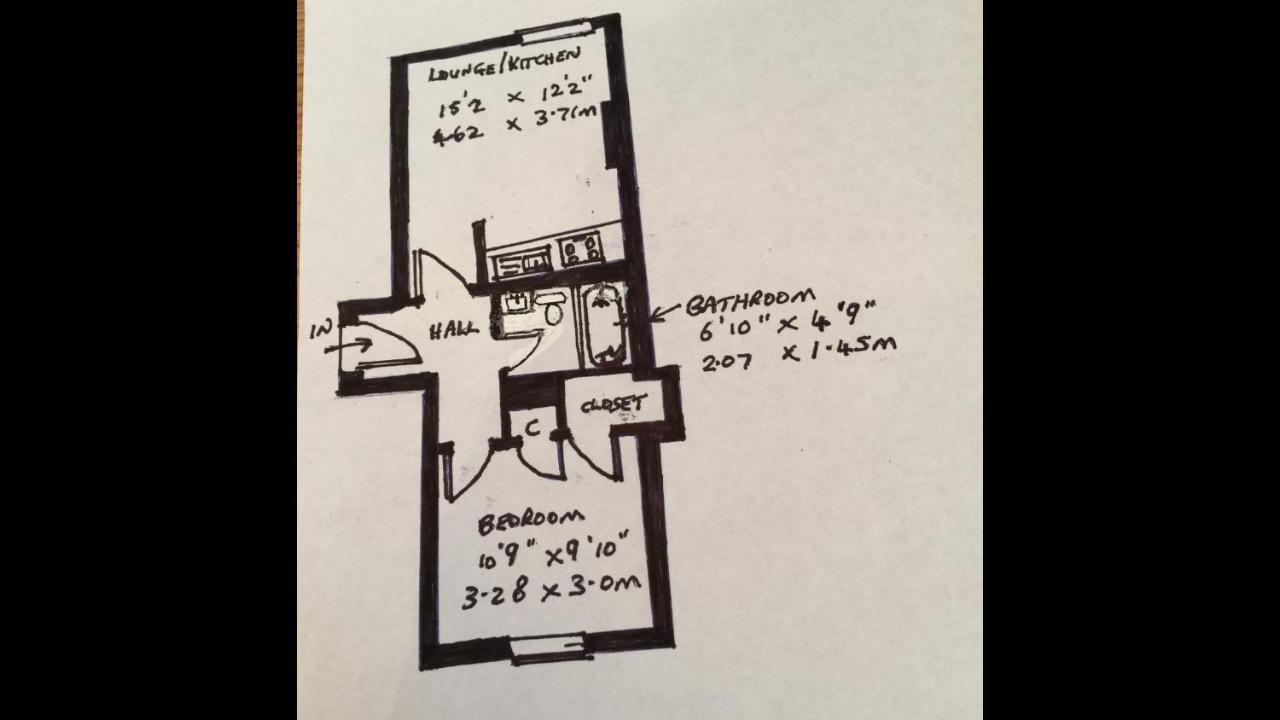 LOUNGE/KITCHEN
15'2 x 12'2"
4.62 x 3.71m
IN
HALL
BATHROOM
6'10" x 4'9"
2.07 x 1.45m
CLOSET
C
BEDROOM
10'9" x 9'10"
3.28 x 3.0m